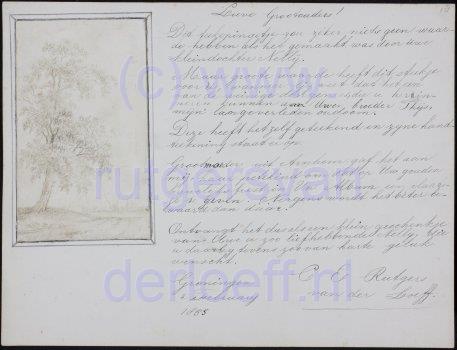 Lieve Grootouders!
Dit teekeningetje zou zeker niets geen waar-
de hebben als het gemaakt was door uwe
kleindochter Nelly.
Maar groote waarde heeft dit stukje
voor u, wanneer
kunnen van Uwe, broeder Thijs,
mijn overleden oudoom.
Deze heeft het zelf geteekend en zijne hand-
teekening staat er op.
Grootmoeder uit Arnhem gaf het aan
mij om het op Uw gouden
feest in Uw Album een plaats-
je te geven. Nergens wordt het beter be-
waard dan daar.
Ontvangt het dus als een klein geschenkje
van Uwe u zoo liefhebbende Nelly, die
u daarbij tevens zoo van harte geluk
wenscht.
Groningen
februari
1885
C. E. Rutgers
van der Loeff.
(c) www.
rutgersvan
derloeff.nl